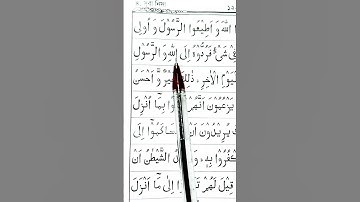 اللّٰهَ وَ اَطِيْعُوا الرَّسُوْلَ وَ اُولِى
شَىْءٍ فَرُدُّوْهُ اِلَى اللّٰهِ وَ الرَّسُوْلِ
الْاٰخِرِ ؕ ذٰلِكَ خَيْرٌ وَّ اَحْسَنُ
يَزْعُمُوْنَ اَنَّهُمْ اٰمَنُوْا بِمَاۤ اُنْزِلَ
يُرِيْدُوْنَ اَنْ يَّتَحَاكَمُوْۤا اِلَى
يَّكْفُرُوْا بِهٖ ؕ وَ يُرِيْدُ الشَّيْطٰنُ اَنْ
قِيْلَ لَهُمْ تَعَالَوْا اِلٰى مَاۤ اَنْزَلَ